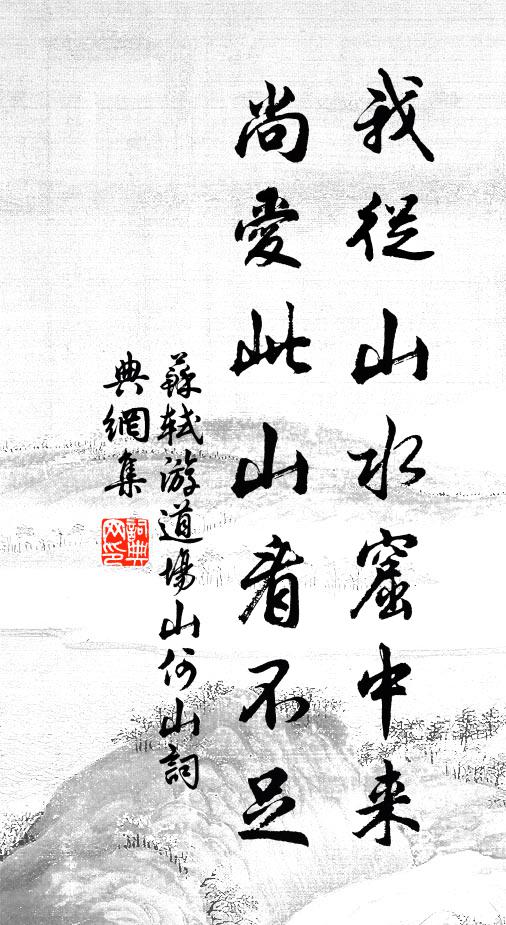 我從山水窟中来
尚愛此山看不足
蘇軾游道場山何山詞
典網集
詞典
网印